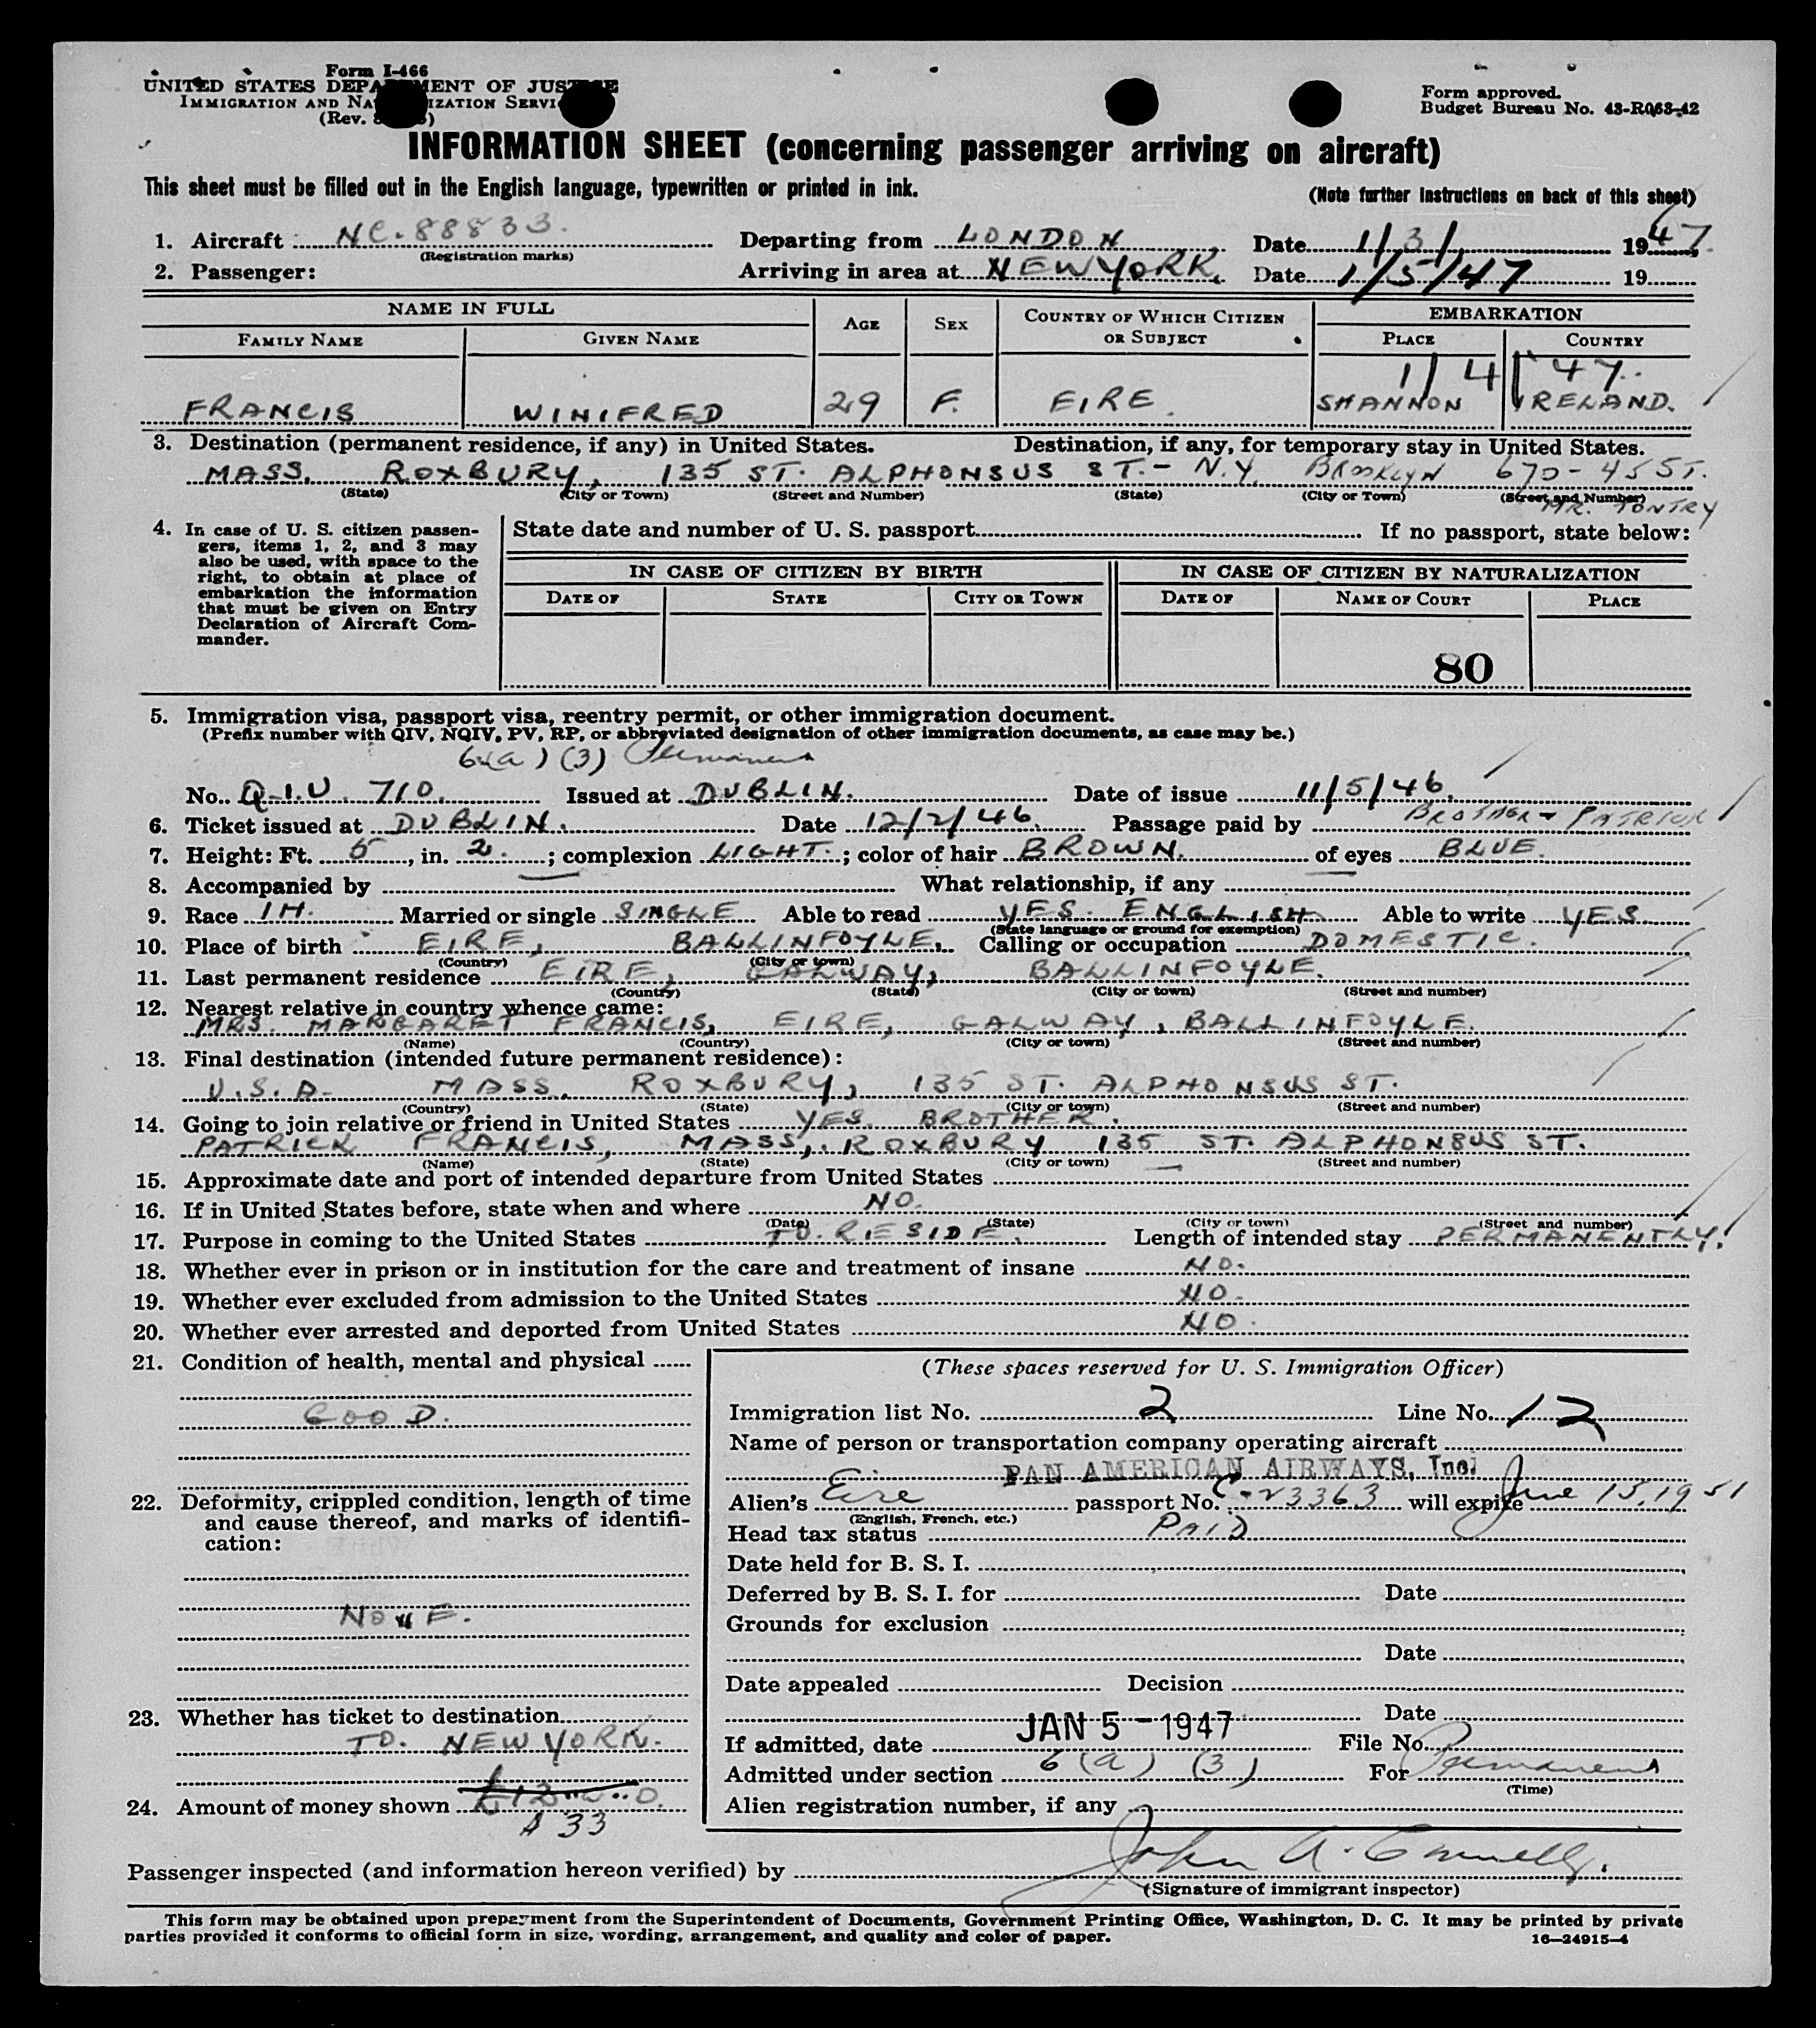 Form I-466
UNITED STATES DEPARTMENT OF JUSTICE
IMMIGRATION AND NATURALIZATION SERVICE
(Rev.
Form approved.
Budget Bureau No. 43-R063-42
INFORMATION SHEET (concerning passenger arriving on aircraft)
This sheet must be filled out in the English language, typewritten or printed in ink.
(Note further instructions on back of this sheet)
1. Aircraft NC. 88833. Departing from LONDON, Date 1/3/ 1947.
(Registration marks)
2. Passenger: Arriving in area at NEW YORK. Date 1/5/47 19
NAME IN FULL AGE SEX COUNTRY OF WHICH CITIZEN OR SUBJECT EMBARKATION
FAMILY NAME GIVEN NAME PLACE COUNTRY
1/4/47.
FRANCIS WINIFRED 29 F. EIRE. SHANNON IRELAND.
3. Destination (permanent residence, if any) in United States. Destination, if any, for temporary stay in United States.
MASS. ROXBURY, 135 ST. ALPHONSUS ST. - N.Y. BROOKLYN 670 - 45 ST.
(State) (City or Town) (Street and Number) (State) (City or Town) (Street and Number)
MR. TONTRY
4. In case of U. S. citizen passengers, items 1, 2, and 3 may
also be used, with space to the
right, to obtain at place of
embarkation the information
that must be given on Entry
Declaration of Aircraft Commander.
State date and number of U. S. passport If no passport, state below:
IN CASE OF CITIZEN BY BIRTH IN CASE OF CITIZEN BY NATURALIZATION
DATE OF STATE CITY OR TOWN DATE OF NAME OF COURT PLACE
80
5. Immigration visa, passport visa, reentry permit, or other immigration document.
(Prefix number with QIV, NQIV, PV, RP, or abbreviated designation of other immigration documents, as case may be.)
6(a) (3) Permanent
No. Q.I.V. 710. Issued at DUBLIN. Date of issue 11/5/46.
6. Ticket issued at DUBLIN. Date 12/2/46. Passage paid by BROTHER - PATRICK
7. Height: Ft. 5, in. 2.; complexion LIGHT.; color of hair BROWN. of eyes BLUE.
8. Accompanied by What relationship, if any
9. Race IH. Married or single SINGLE Able to read YES. ENGLISH Able to write YES
(State language or ground for exemption)
10. Place of birth EIRE, BALLINFOYLE. Calling or occupation DOMESTIC.
(Country) (City or town)
11. Last permanent residence EIRE, GALWAY, BALLINFOYLE.
(Country) (State) (City or town) (Street and number)
12. Nearest relative in country whence came:
MRS. MARGARET FRANCIS, EIRE, GALWAY, BALLINFOYLE.
(Name) (Country) (City or town) (Street and number)
13. Final destination (intended future permanent residence):
U.S.A. MASS. ROXBURY, 135 ST. ALPHONSUS ST.
(Country) (State) (City or town) (Street and number)
14. Going to join relative or friend in United States YES. BROTHER.
PATRICK FRANCIS, MASS., ROXBURY 135 ST. ALPHONSUS ST.
(Name) (State) (City or town) (Street and number)
15. Approximate date and port of intended departure from United States
16. If in United States before, state when and where NO.
(Date) (State) (City or town) (Street and number)
17. Purpose in coming to the United States TO. RESIDE. Length of intended stay PERMANENTLY.
18. Whether ever in prison or in institution for the care and treatment of insane NO.
19. Whether ever excluded from admission to the United States NO.
20. Whether ever arrested and deported from United States NO.
21. Condition of health, mental and physical
GOOD.
22. Deformity, crippled condition, length of time
and cause thereof, and marks of identification:
NONE.
23. Whether has ticket to destination
TO. NEW YORK.
24. Amount of money shown
$33
(These spaces reserved for U. S. Immigration Officer)
Immigration list No. 2 Line No. 12
Name of person or transportation company operating aircraft
PAN AMERICAN AIRWAYS, Inc.
Alien's Eire passport No. C-23363 will expire June 15, 1951
(English, French, etc.)
Head tax status PAID
Date held for B. S. I.
Deferred by B. S. I. for Date
Grounds for exclusion
Date
Date appealed Decision
Date
If admitted, date JAN 5 - 1947 File No.
Admitted under section 6(a) (3) For Permanent
(Time)
Alien registration number, if any
Passenger inspected (and information hereon verified) by John A. Connelly.
(Signature of immigrant inspector)
This form may be obtained upon prepayment from the Superintendent of Documents, Government Printing Office, Washington, D. C. It may be printed by private
parties provided it conforms to official form in size, wording, arrangement, and quality and color of paper.
16—24915-4